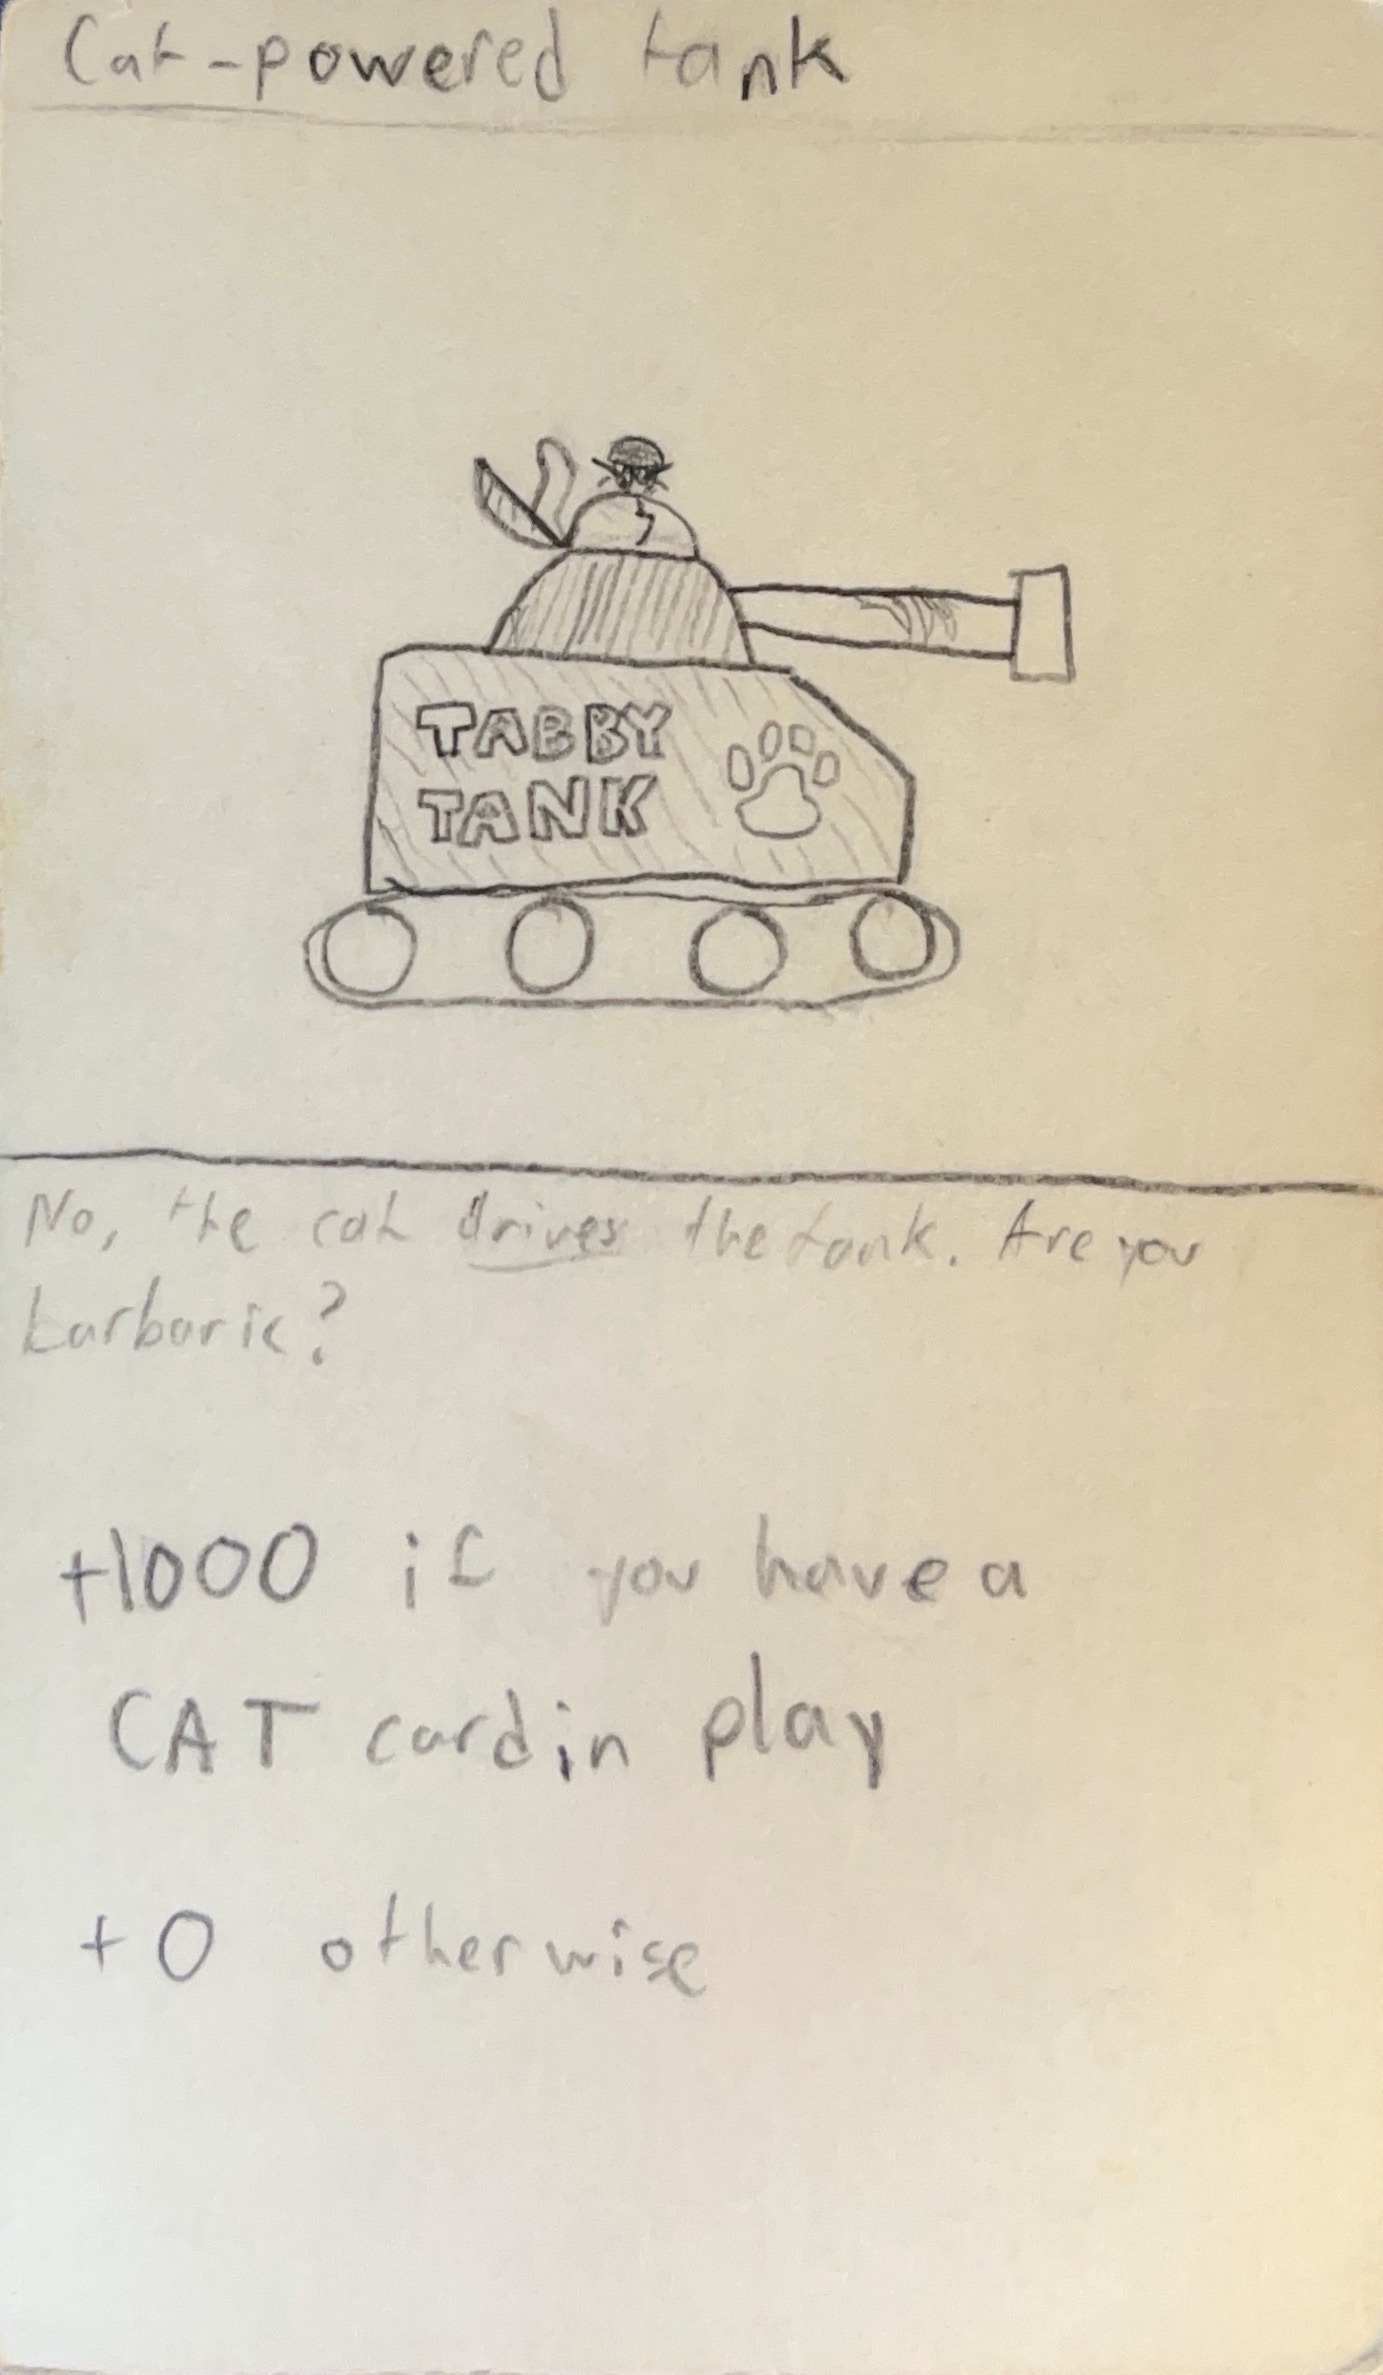 Cat-powered tank
TABBY
TANK
No, the cat drives the tank. Are you
barbaric?
+1000 if you have a
CAT card in play
+0 otherwise